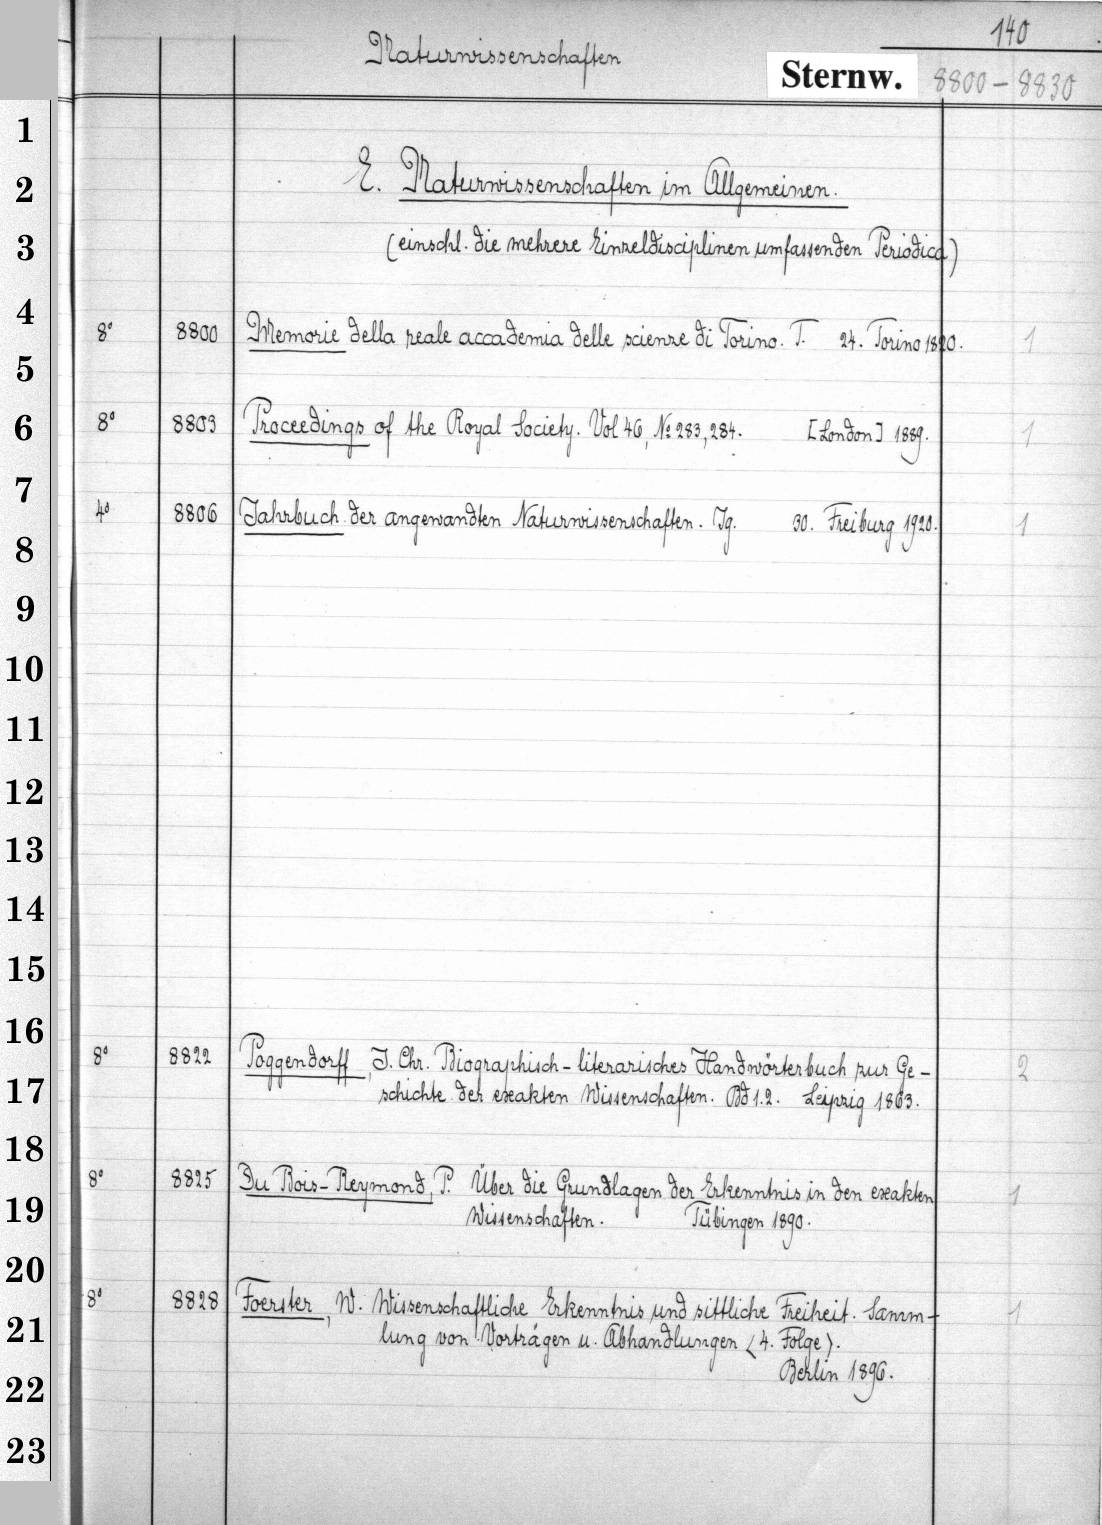 140
Naturwissenschaften
Sternw. 8800 – 8830
1
2 E. Naturwissenschaften im Allgemeinen.
3 (einschl. die mehrere Einzeldisciplinen umfassenden Periodica)
4 8° 8800 Memorie della reale accademia delle scienze di Torino. T. 24. Torino 1820. 1
5
6 8° 8803 Proceedings of the Royal Society. Vol 46, № 283, 284. [London] 1889. 1
7
4° 8806 Jahrbuch der angewandten Naturwissenschaften. Jg. 30. Freiburg 1920. 1
8
9
10
11
12
13
14
15
16
8° 8822 Poggendorff, J. Chr. Biographisch-literarisches Handwörterbuch zur Ge- 2
17 schichte der exakten Wissenschaften. Bd 1.2. Leipzig 1863.
18
8° 8825 Du Bois-Reymond, P. Über die Grundlagen der Erkenntnis in den exakten 1
19 Wissenschaften. Tübingen 1890.
20
8° 8828 Foerster, W. Wissenschaftliche Erkenntnis und sittliche Freiheit. Samm- 1
21 lung von Vorträgen u. Abhandlungen (4. Folge).
22 Berlin 1896.
23